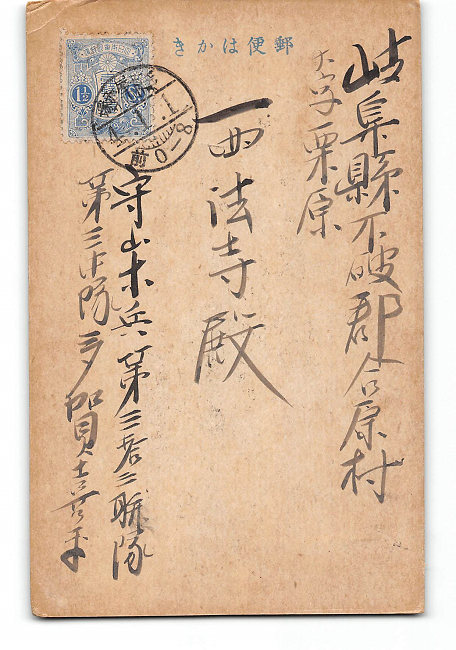 郵便はかき
岐阜縣不破郡合原村
大字栗原
一西法寺殿
守山木兵第三拾三聯隊
第三中隊多賀喜
1½
前0-8